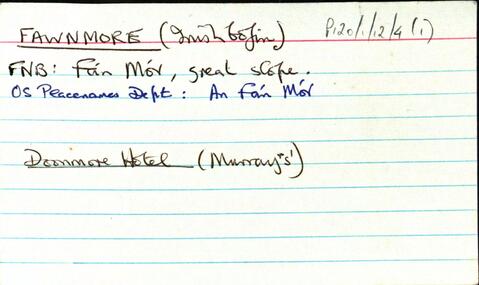 FAWNMORE (Inishbofin)
P120/1/12/4 (1)
FNB: Fán Mór, great slope.
OS Peacenames Dept: An Fán Mór
Doonmore Hotel (Murray's)